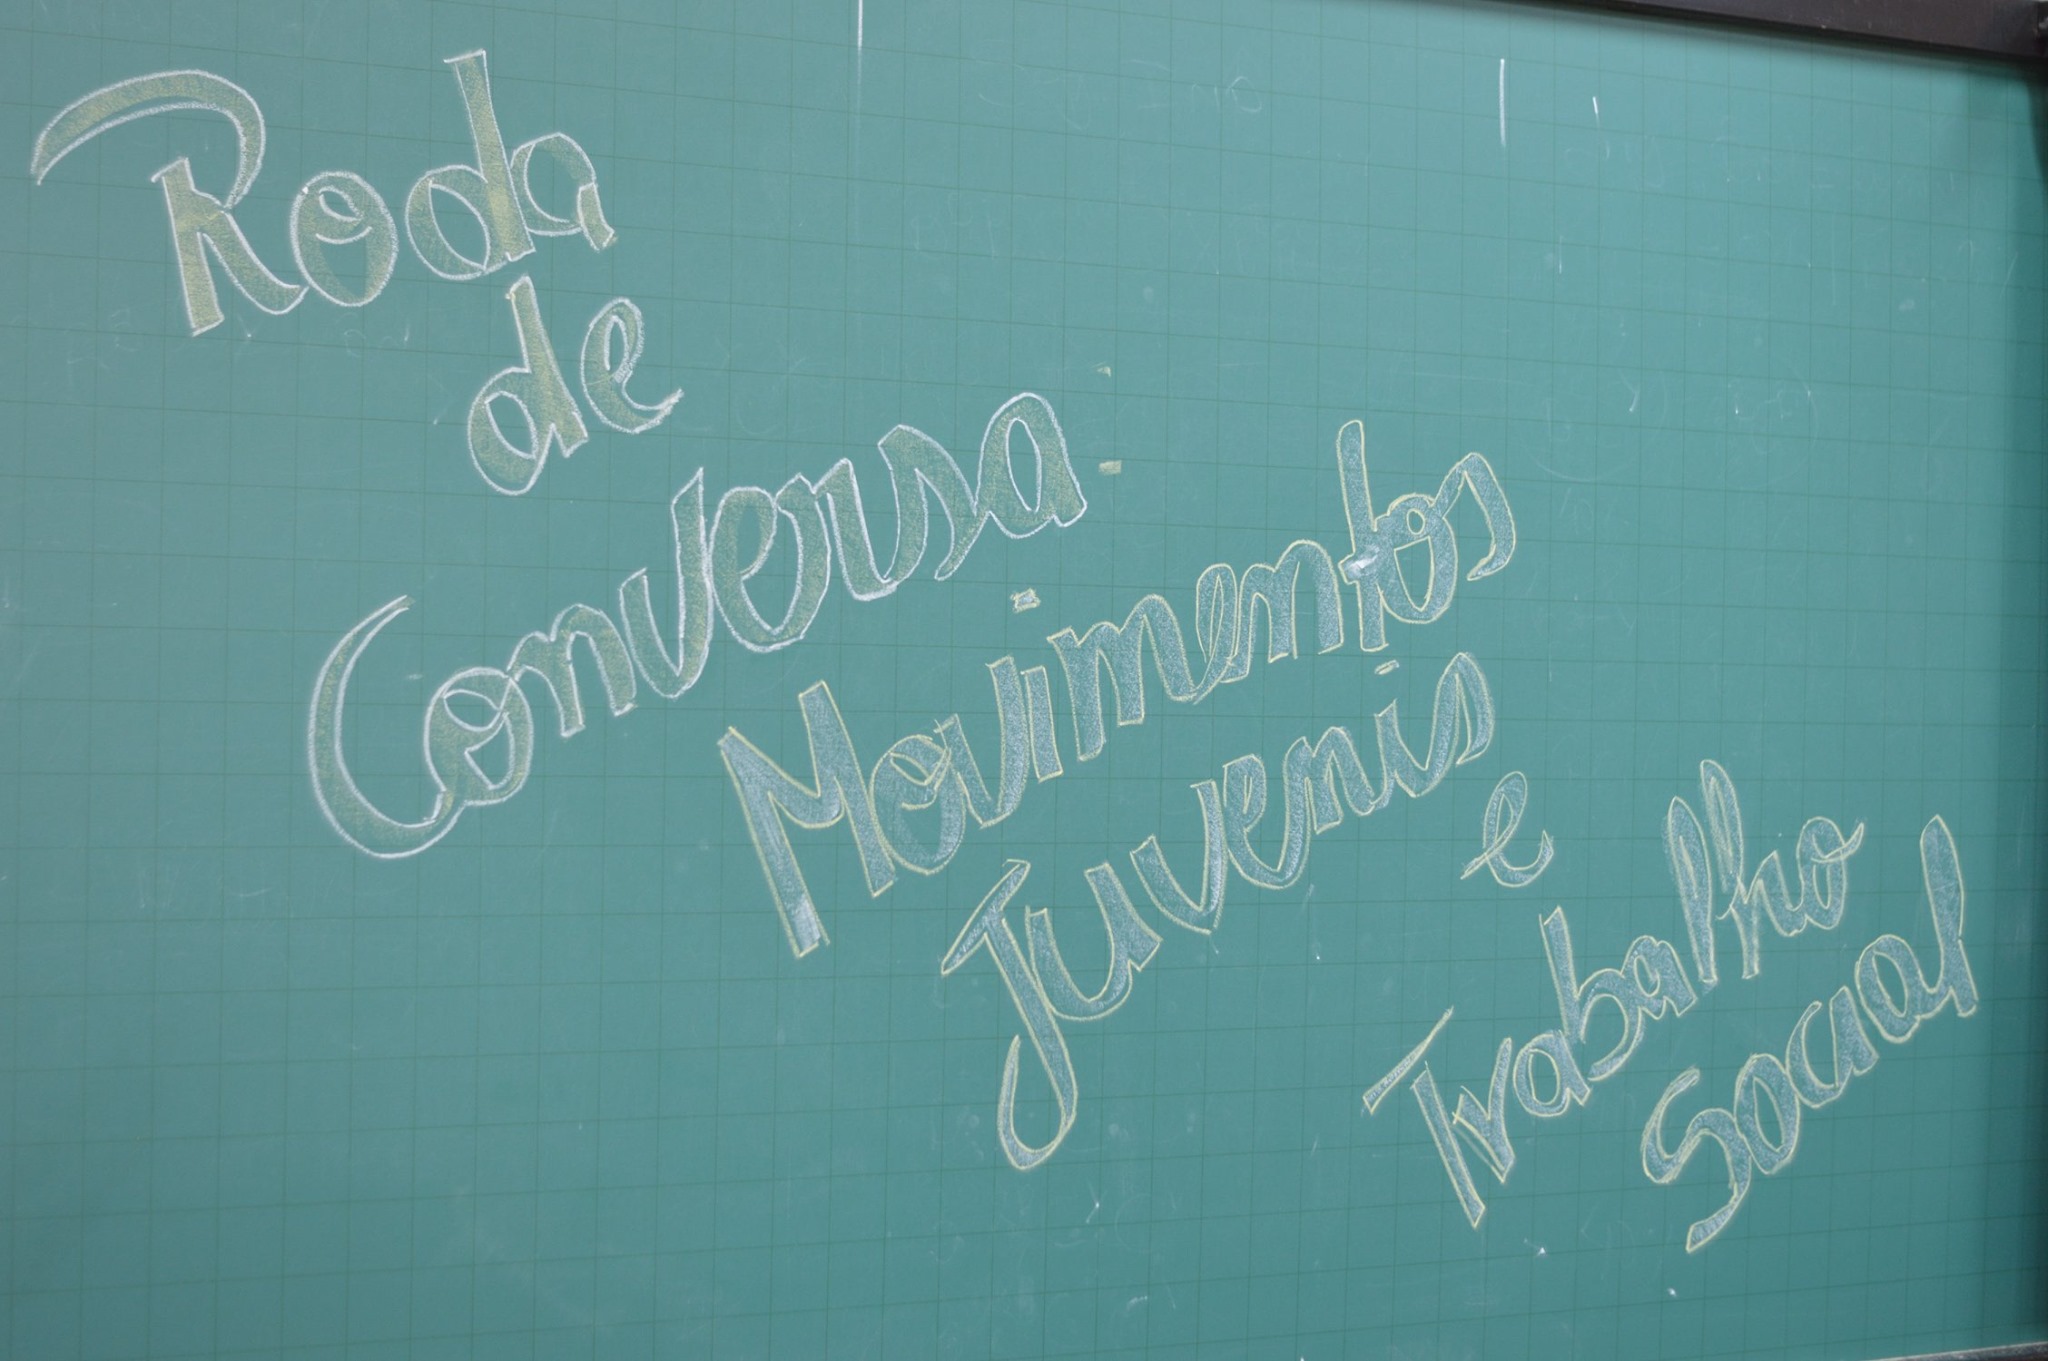 Roda
de
Conversa:
Movimentos
Juvenis
e
Trabalho
Social